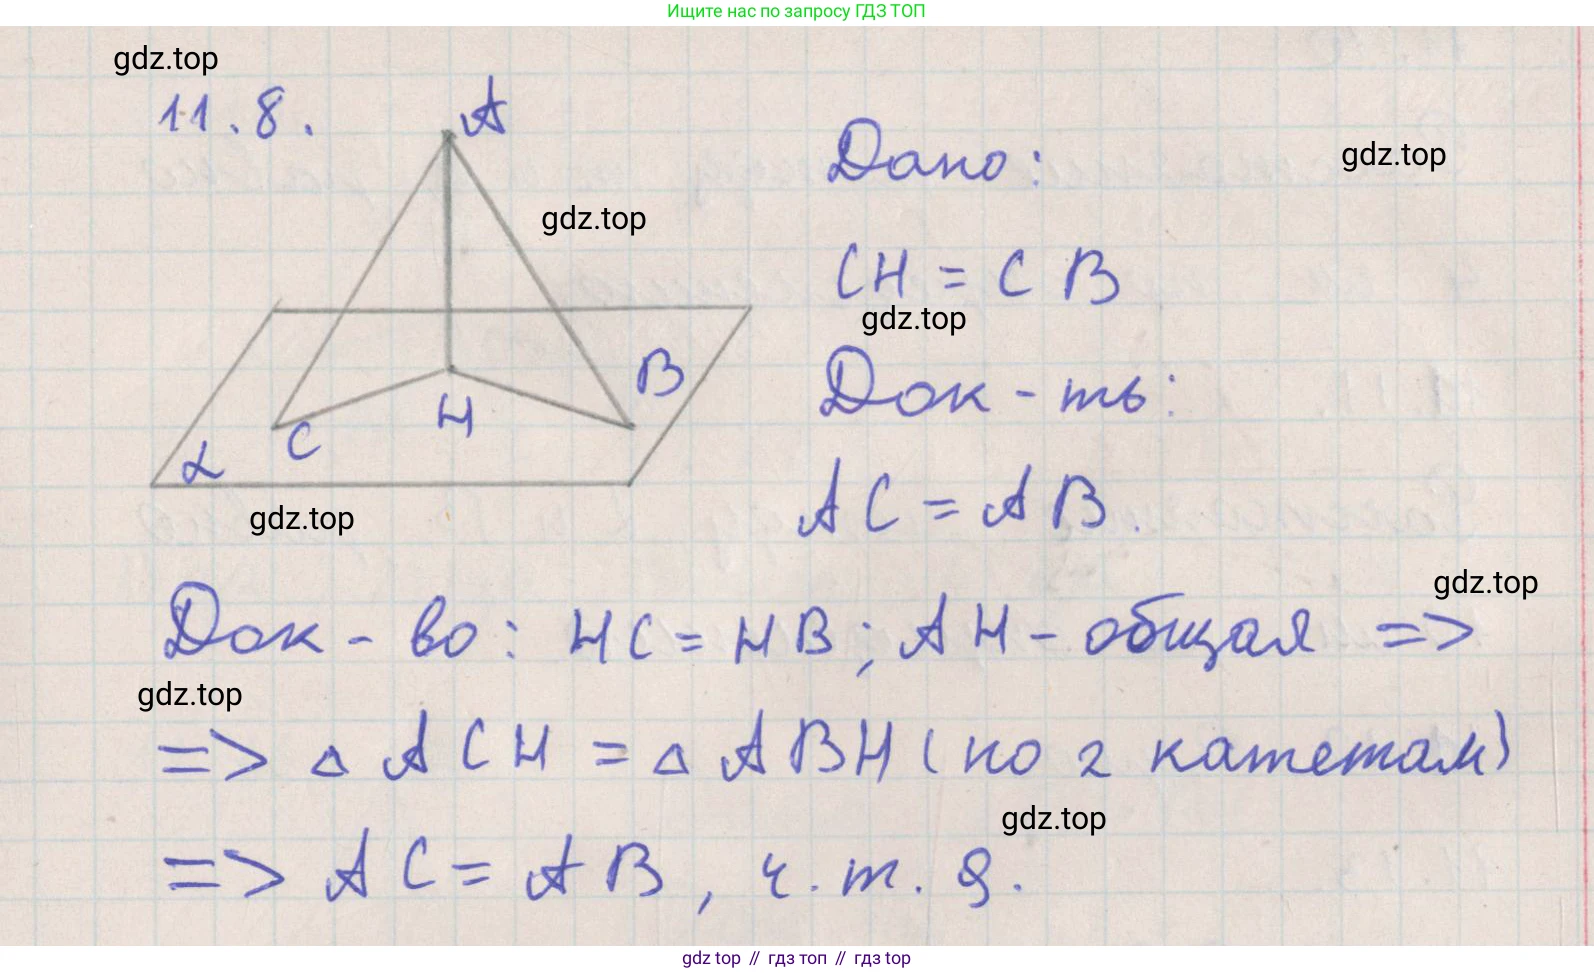 Ищите нас по запросу ГДЗ ТОП
gdz.top
11.8.
A
Дано:
gdz.top
gdz.top
CH = CB
gdz.top
B
Док-ть:
H
C
α
AC = AB.
gdz.top
gdz.top
Док-во: HC = HB; AH - общая =>
gdz.top
=> △ ACH = △ ABH (по 2 катетам)
gdz.top
=> AC = AB, ч.т.д.
gdz top // гдз топ // гдз top